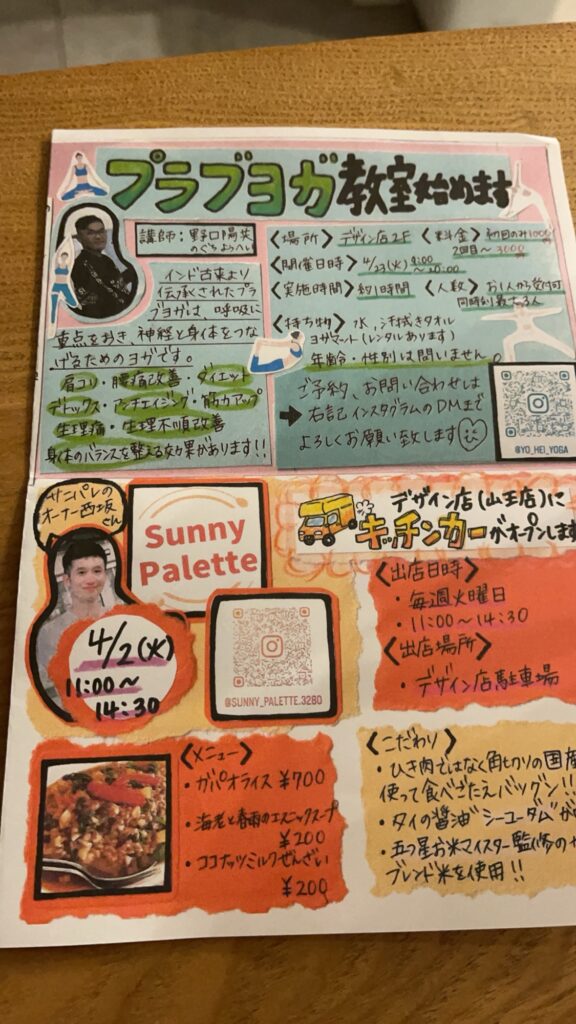 プラブヨガ教室始めます
講師：野口陽英
のぐちようへい
インド古来より
伝承されたプラ
ブヨガは、呼吸に
重点をおき、神経と身体をつな
げるためのヨガです。
肩コリ・腰痛改善・ダイエット
デトックス・アンチエイジング・筋力アップ
生理痛・生理不順改善
身体のバランスを整える効果があります!!
〈場所〉デザイン店2F 〈料金〉初回のみ1000
2回目〜3000
〈開催日時〉4/23(火)
〜20:00
〈実施時間〉約1時間 〈人数〉お1人から受付可
同時刻最大3人
〈持ち物〉水、汗拭きタオル
ヨガマット(レンタルあります)
年齢・性別は問いません。
ご予約、お問い合わせは
→右記インスタグラムのDMまで
よろしくお願い致します
@YO_HEI_YOGA
サニパレの
オーナー西坂
さん
Sunny
Palette
デザイン店(山王店)に
キッチンカーがオープンします
4/2(火)
11:00〜
14:30
@SUNNY_PALETTE.3280
〈出店日時〉
・毎週火曜日
・11:00〜14:30
〈出店場所〉
・デザイン店駐車場
〈メニュー〉
・ガパオライス ¥700
・海老と春雨のエスニックスープ
¥200
・ココナッツミルクぜんざい
¥200
〈こだわり〉
・ひき肉ではなく角切りの国産
使って食べごたえバッグン!!
・タイの醤油"シーユーダム"が
・五つ星お米マイスター監修の
ブレンド米を使用!!